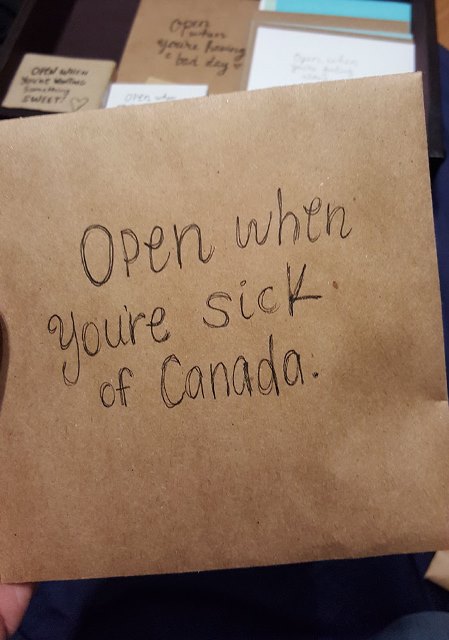 OPEN WHEN
YOU'RE WANTING
Something
SWEET!
Open
when
you're having
a bad day
Open when
Open when
you're feeling
Open when
you're sick
of Canada.